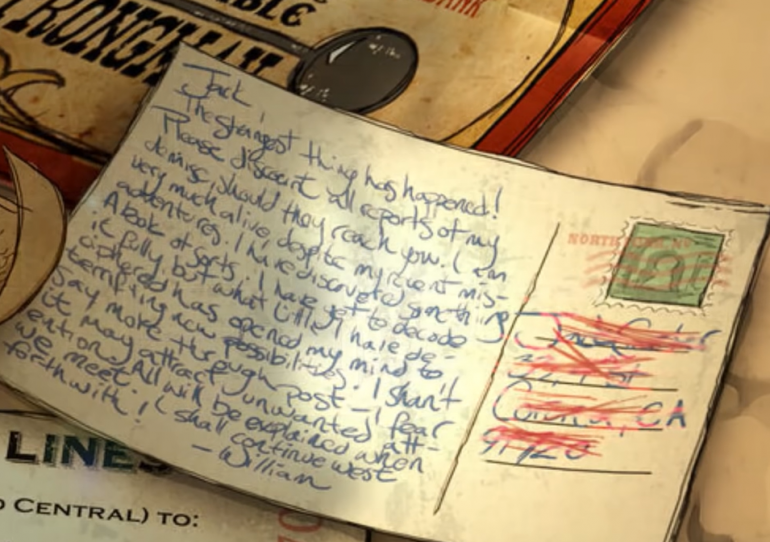 BLE
BANK
RONGMAN
Jack,
The strangest thing has happened!
Please discount all reports of my
demise, should they reach you. I am
very much alive despite my recent mis-
adventures. I have discovered something
A book of sorts. I have yet to decode
it fully but what little I have de-
ciphered has opened my mind to
terrifying new possibilities. I shan't
say more through post - I fear
it may attract unwanted att-
ention. All will be explained when
we meet. I shall continue west
forthwith!
- William
NORTH
CA
LINES
CENTRAL) TO: